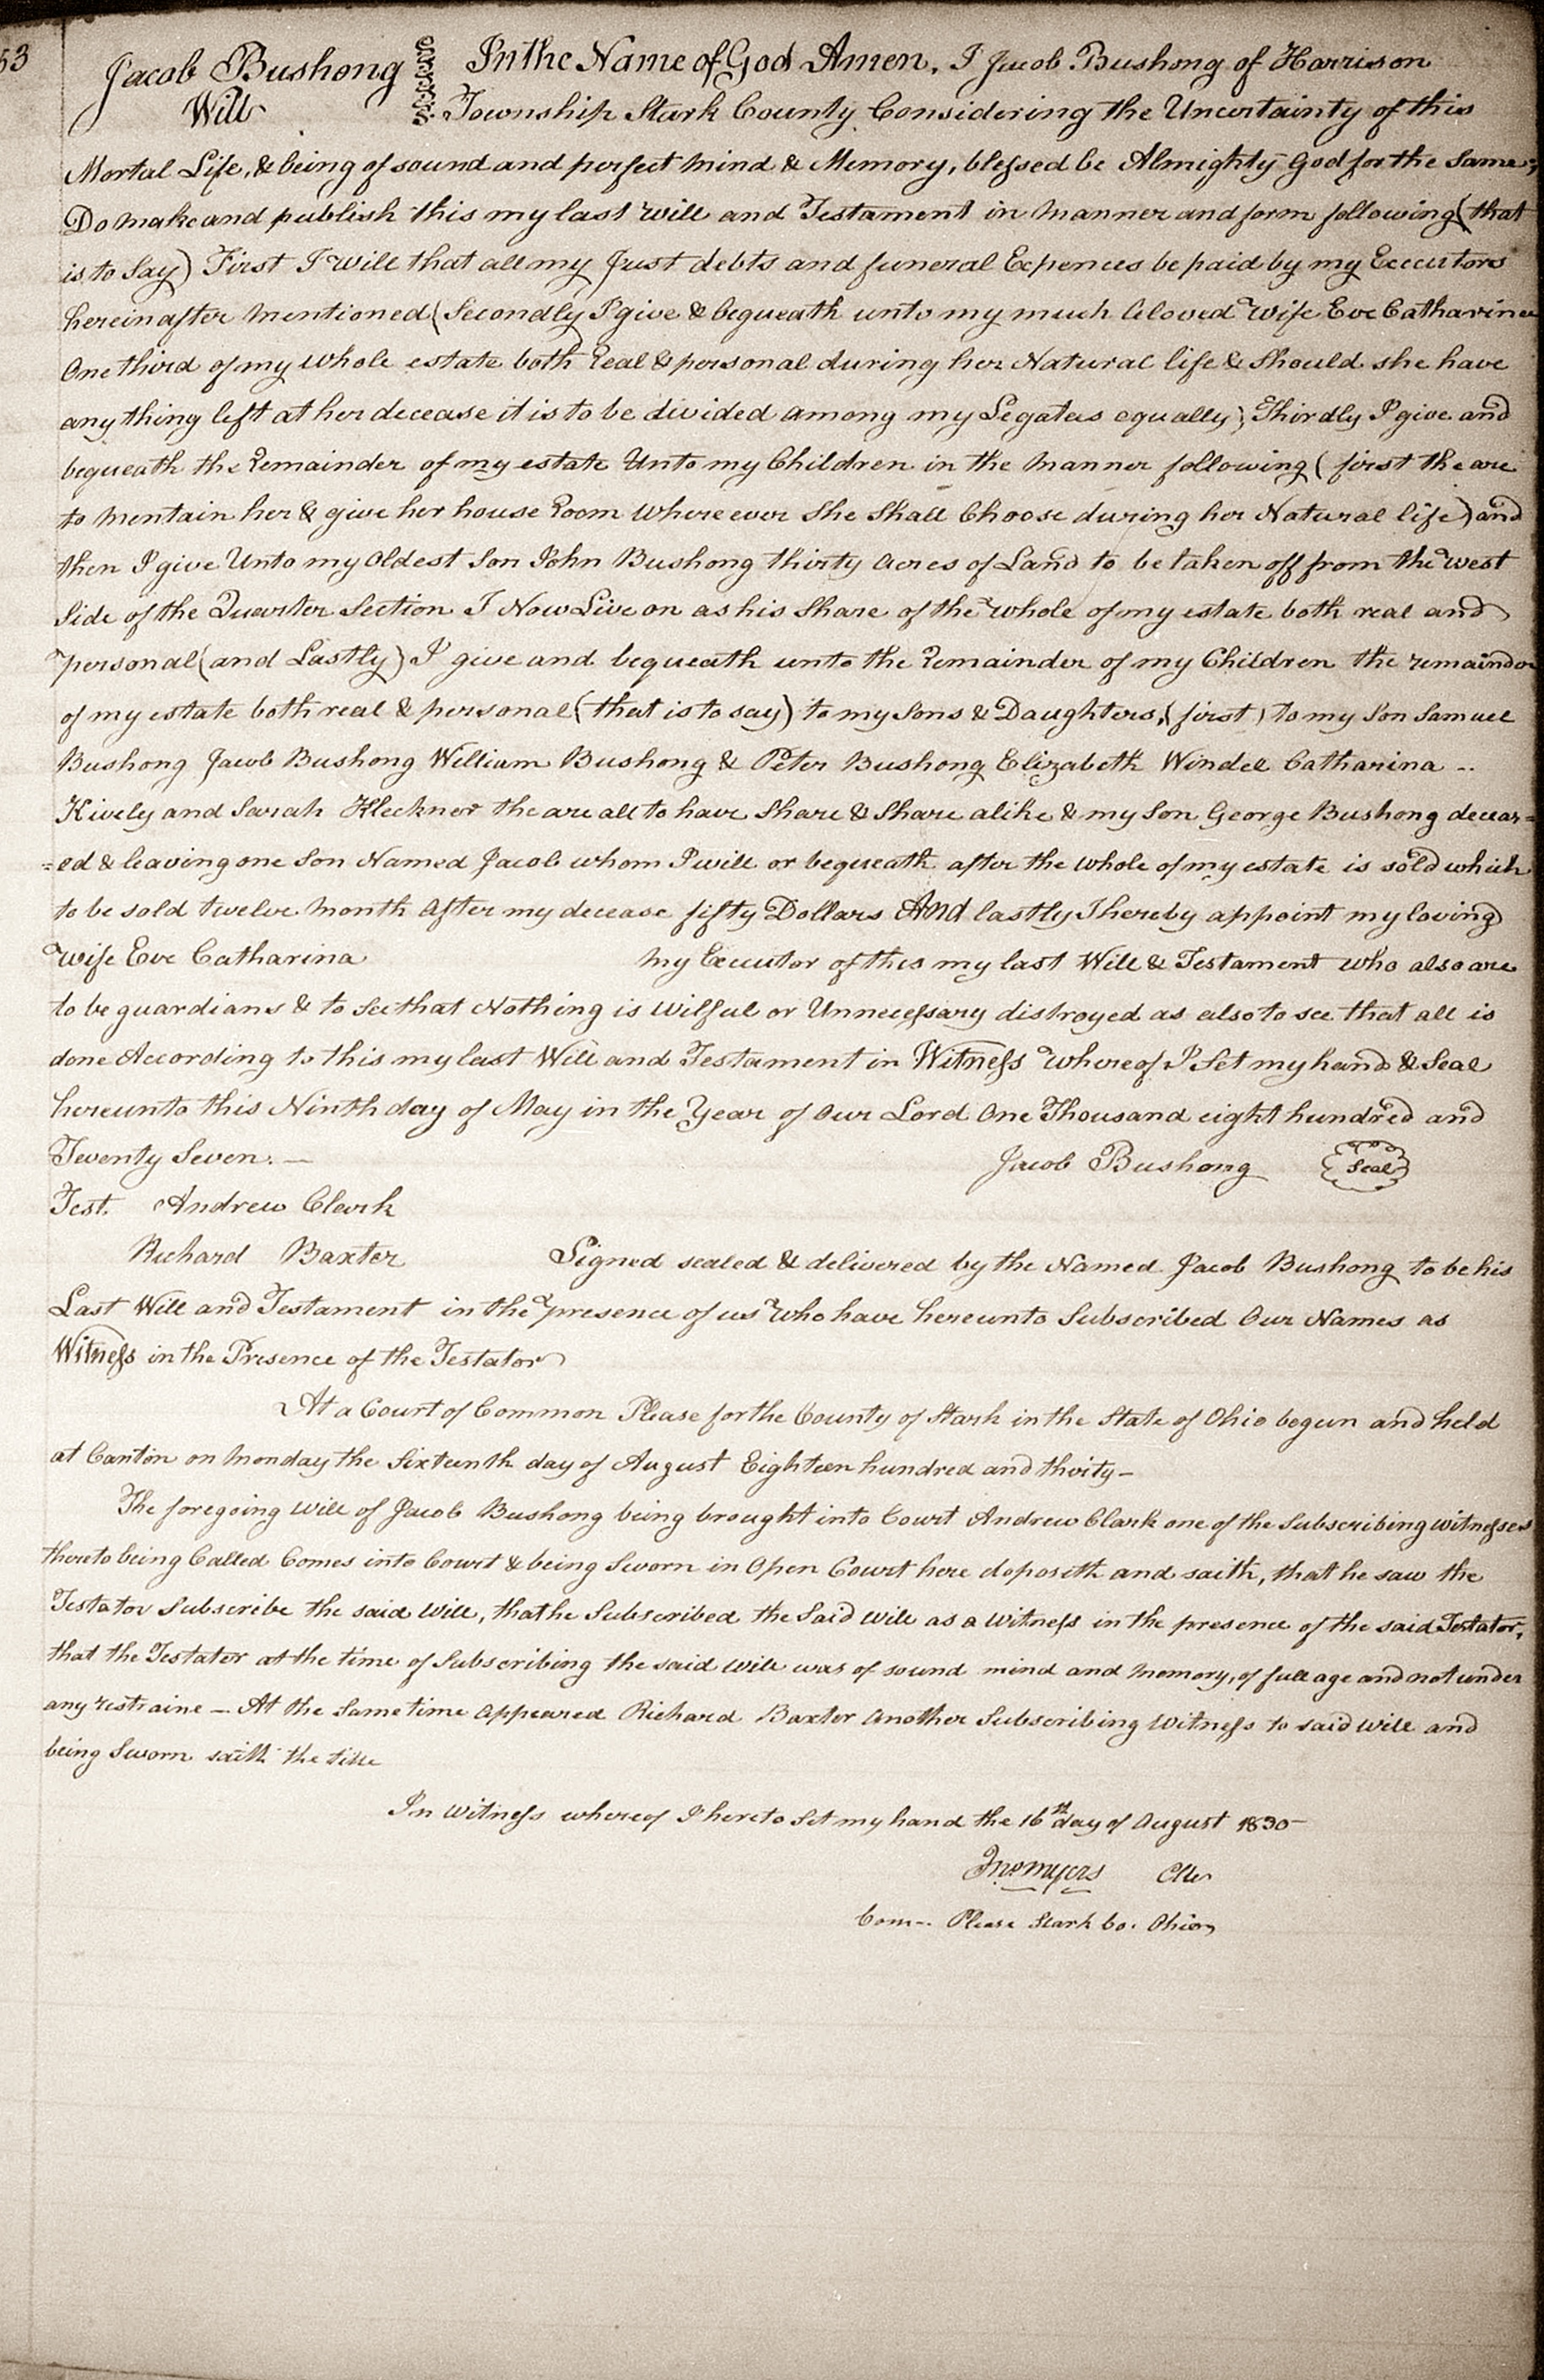 53
Jacob Bushong
Will
In the Name of God Amen, I Jacob Bushong of Harrison
Township Stark County Considering the Uncertainty of this
Mortal Life, & being of sound and perfect mind & Memory, blessed be Almighty God for the Same;
Do make and publish this my last will and Testament in manner and form following (that
is to Say) First I will that all my Just debts and funeral Expences be paid by my Executors
hereinafter mentioned (Secondly I give & bequeath unto my much beloved wife Eve Catharina
One third of my whole estate both Real & personal during her Natural life & Should she have
any thing left at her decease it is to be divided among my Legatees equally; Thirdly I give and
bequeath the Remainder of my estate Unto my Children in the manner following (first the are
to mentain her & give her house Room where ever She Shall Choose during her Natural life) and
then I give Unto my Oldest Son John Bushong thirty acres of Land to be taken off from the west
Side of the Quarter Section I Now Live on as his Share of the whole of my estate both real and
personal (and Lastly) I give and bequeath unto the Remainder of my Children the remainder
of my estate both real & personal (that is to say) to my Sons & Daughters, (first) to my Son Samuel
Bushong Jacob Bushong William Bushong & Peter Bushong Elizabeth Windel Catharina --
Kively and Sarah Kleckner the are all to have Share & Share alike & my Son George Bushong deceas=
=ed & leaving one Son Named Jacob whom I will or bequeath after the whole of my estate is sold which
to be sold twelve month after my decease fifty Dollars And lastly I hereby appoint my loving
wife Eve Catharina my Executor of this my last Will & Testament who also are
to be guardians & to See that Nothing is wilful or Unnecessary distroyed as also to see that all is
done According to this my last Will and Testament in Witness whereof I Set my hand & Seal
hereunto this Ninth day of May in the Year of Our Lord One Thousand eight hundred and
Twenty Seven. — Jacob Bushong Seal
Test. Andrew Clark
Richard Baxter Signed sealed & delivered by the Named Jacob Bushong to be his
Last Will and Testament in the presence of us who have hereunto Subscribed Our Names as
Witness in the Presence of the Testator
At a Court of Common Please for the County of Stark in the State of Ohio begun and held
at Canton on Monday the Sixteenth day of August Eighteen hundred and thirty —
The foregoing will of Jacob Bushong being brought into Court Andrew Clark one of the Subscribing witnesses
thereto being Called Comes into Court & being Sworn in Open Court here deposeth and saith, that he saw the
Testator Subscribe the said Will, that he Subscribed the Said Will as a Witness in the presence of the said Testator,
that the Testator at the time of Subscribing the said Will was of sound mind and memory, of full age and not under
any restraine — At the Same time appeared Richard Baxter another Subscribing Witness to said Will and
being Sworn saith the
In Witness whereof I hereto Set my hand the 16th day of August 1830 —
Jno Myers Clk
Com -. Please Stark Co. Ohio